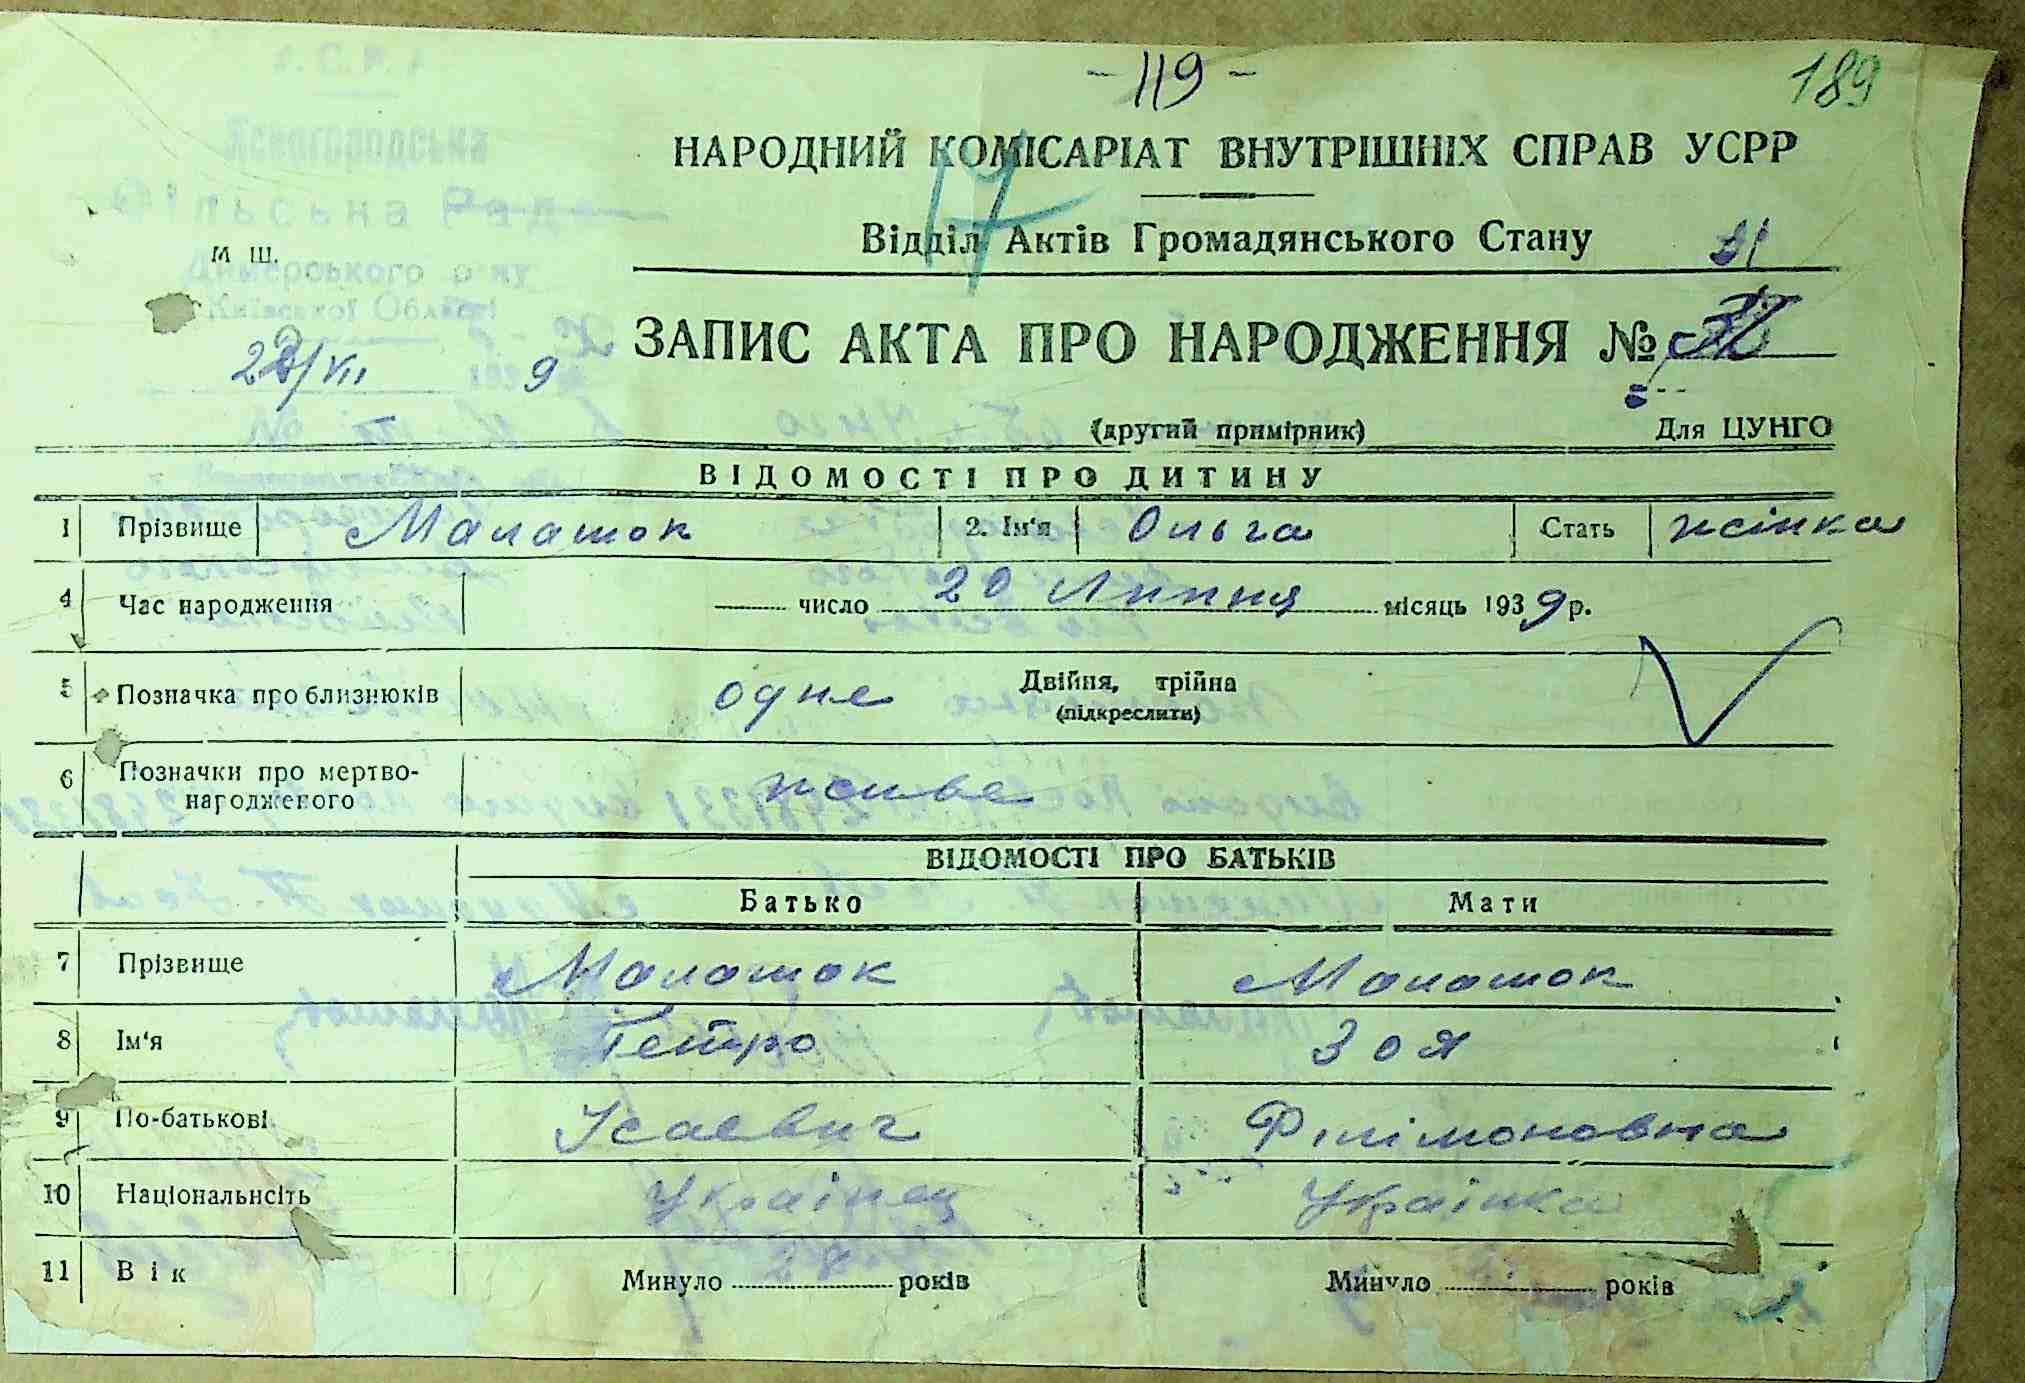 - 119 -
189
Ясногородська
НАРОДНИЙ КОМІСАРІАТ ВНУТРІШНІХ СПРАВ УСРР
17
Сільська Рада
Відділ Актів Громадянського Стану 31
М Ш.
Димерського р-ну
Київської Області
ЗАПИС АКТА ПРО НАРОДЖЕННЯ №
/VII 9
(другий примірник) Для ЦУНГО
ВІДОМОСТІ ПРО ДИТИНУ
1 Прізвище Малашок 2. Ім'я Ольга Стать жінка
4 Час народження число 20 Липня місяць 1939 р.
5 Позначка про близнюків одне Двійня, трійна
(підкреслити)
6 Позначки про мертво-
народженого живе
ВІДОМОСТІ ПРО БАТЬКІВ
Батько Мати
7 Прізвище Малашок Малашок
8 Ім'я Петро Зоя
9 По-батькові Ісаевич Філімоновна
10 Національність Українец Українка
11 Вік Минуло років Минуло років